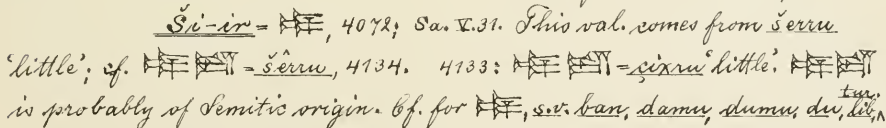 Ši-ir = 𒌉, 4072; Sa. V. 31. This val. comes from šerru
'little'; cf. 𒌉 = šêrru, 4134. 4133: 𒌉 = çixru 'little'. 𒌉
is probably of Semitic origin. Cf. for 𒌉, s.v. ban, damu, dumu, du, lib, tur.